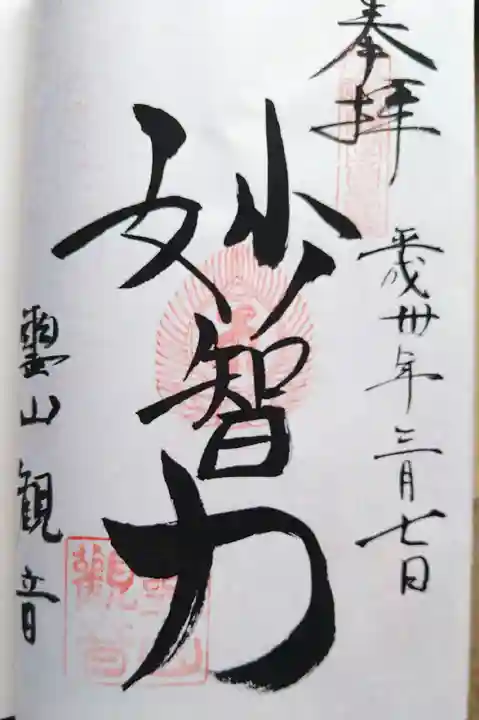 奉拝
平成卅年三月七日
妙智力
霊山観音